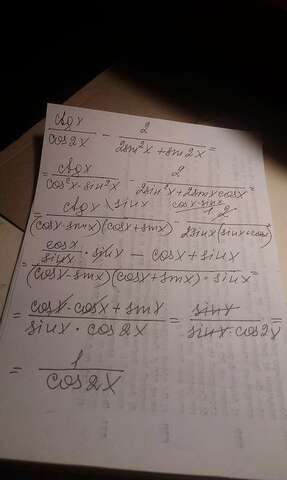 ctgx/cos2x - 2/(2sin²x + sin2x) =
= ctgx/(cos²x - sin²x) - 2/(2sin²x + 2sinx cosx) =
= ctgx \ sinx/((cosx - sinx)(cosx + sinx)) - cosx - sinx \ 2/(2sinx(sinx + cosx)) =
= (cosx/sinx · sinx - cosx + sinx)/((cosx - sinx)(cosx + sinx) · sinx) =
= (cosx - cosx + sinx)/(sinx · cos2x) = sinx/(sinx · cos2x) =
= 1/cos2x